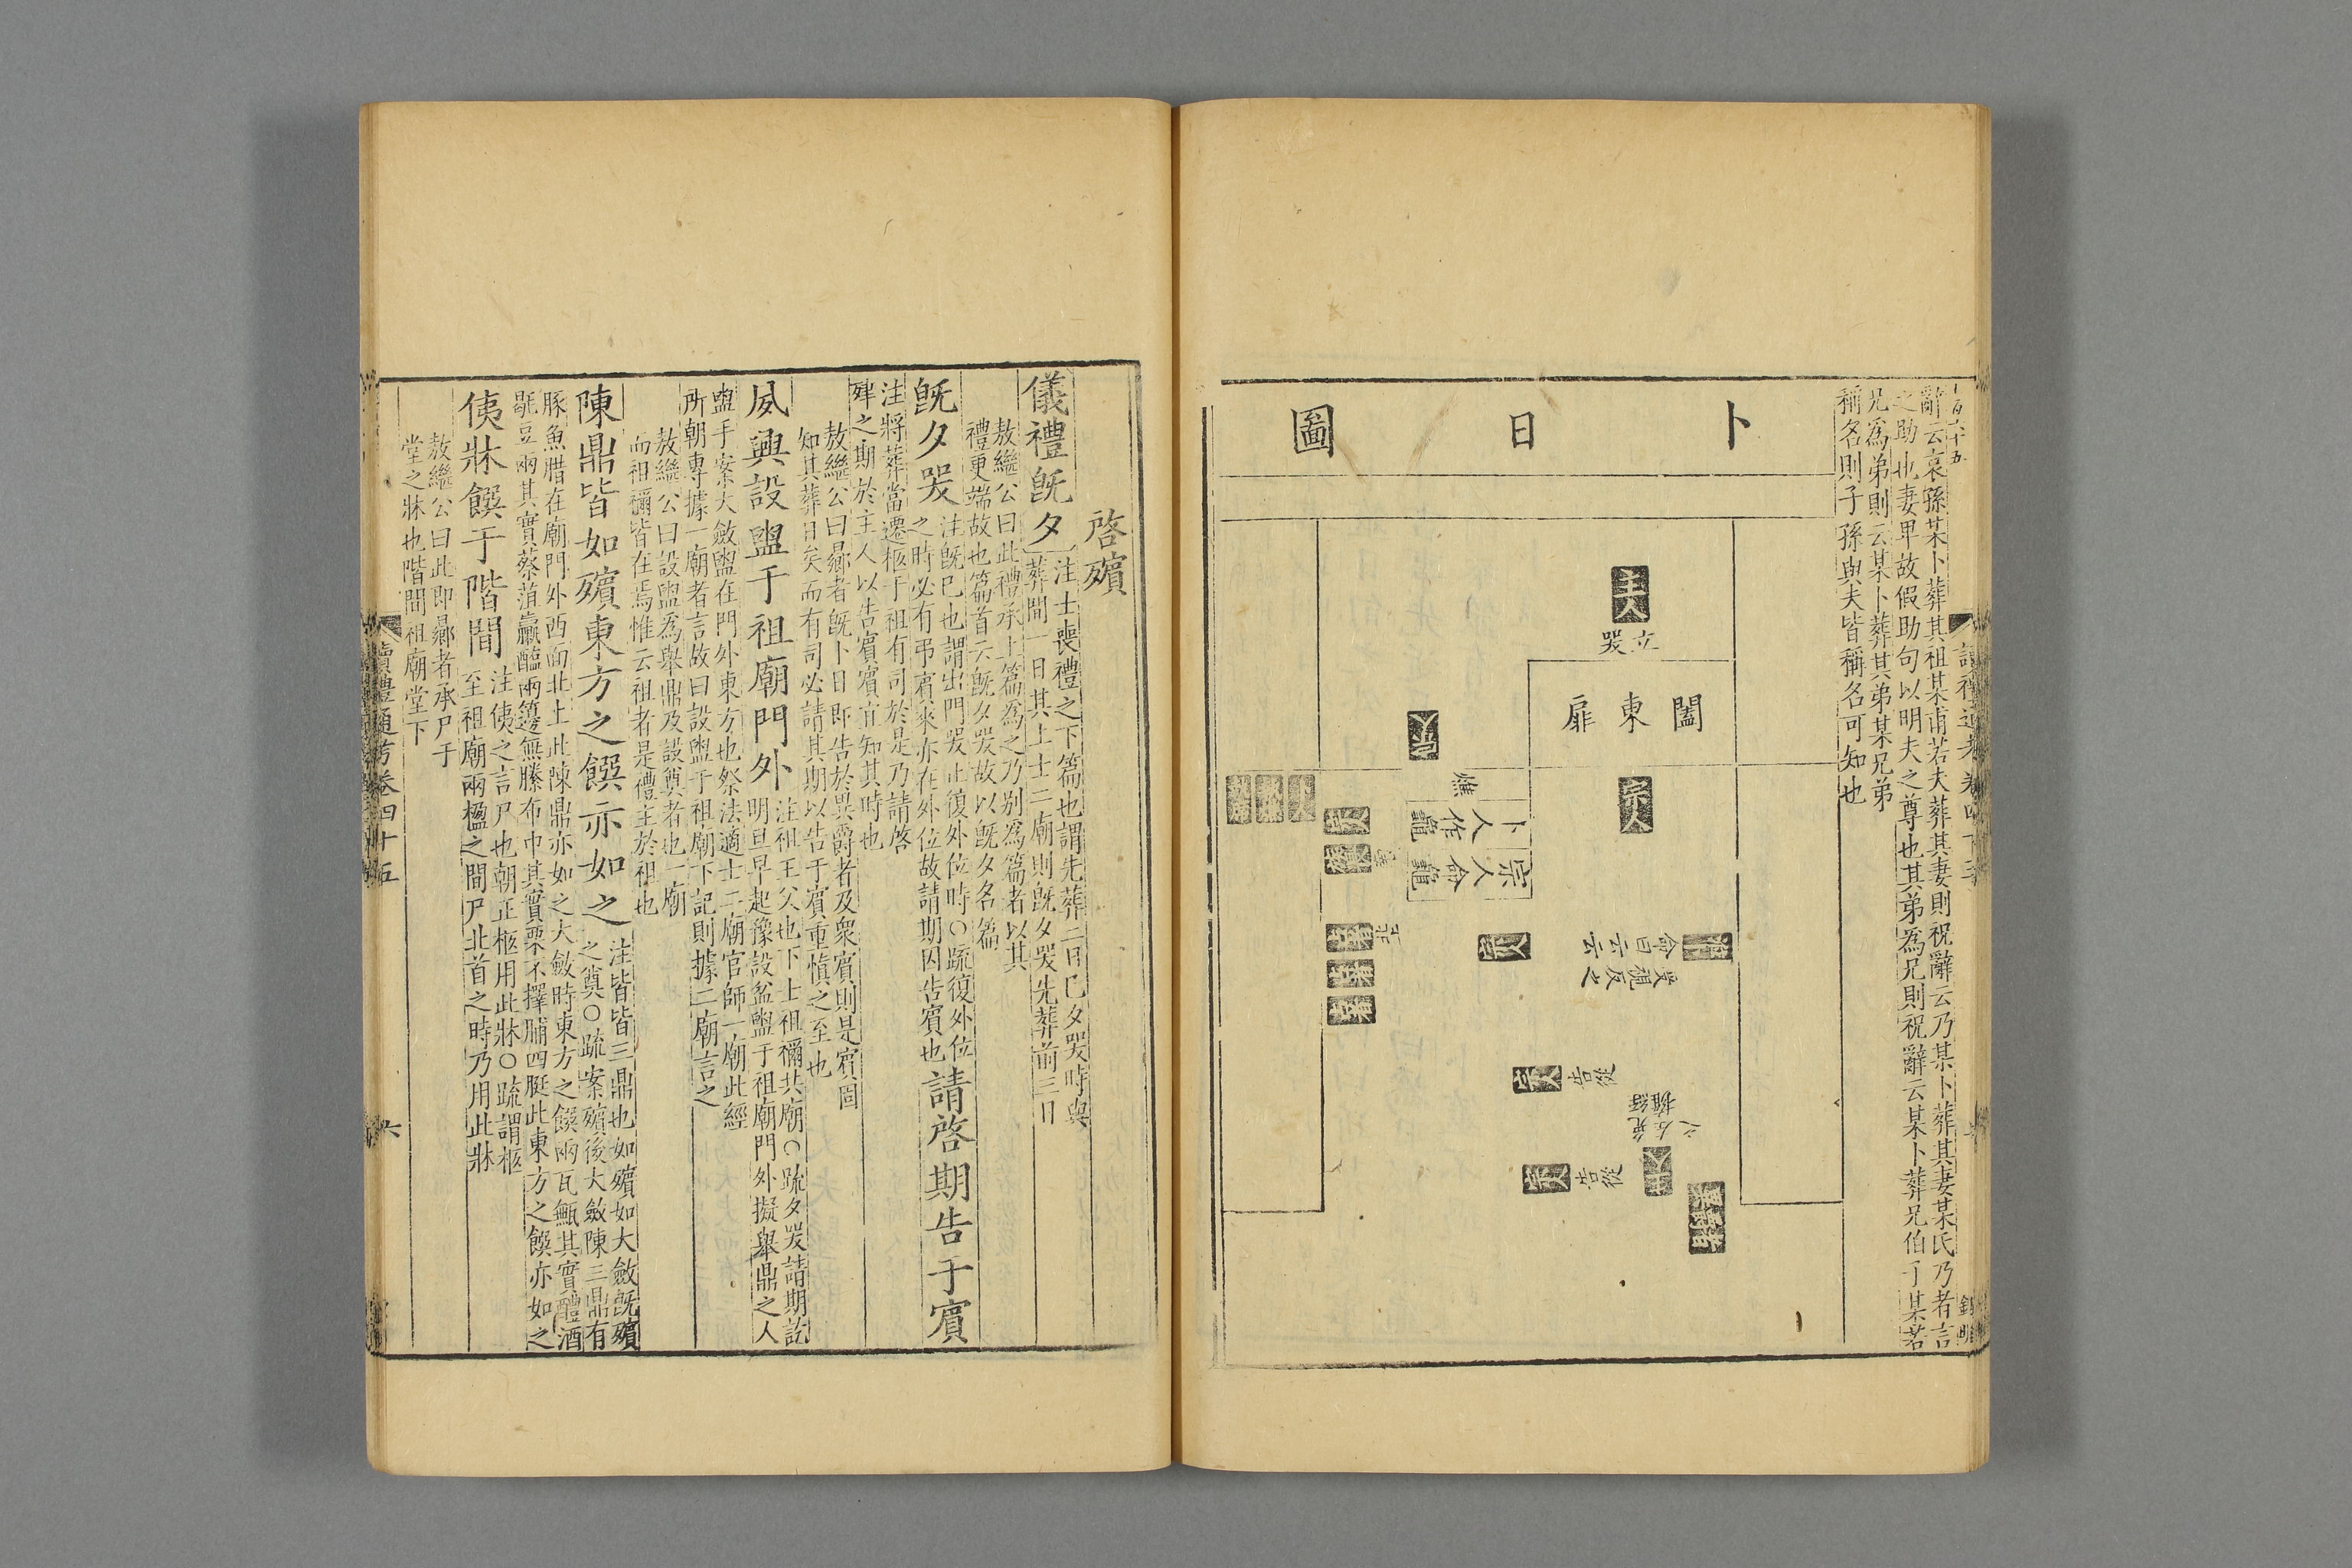 辭云哀孫某卜葬其祖某甫若夫葬其妻則祝辭云乃某卜葬其妻某氏乃者言
之助也妻卑故假助句以明夫之尊也其弟為兄則祝辭云某卜葬兄伯子某若
兄為弟則云某卜葬其弟某兄弟
稱名則子孫與夫皆稱名可知也
卜日圖
主人
立哭
闔東扉
宗人
卜人作龜
宗人命龜
命曰云云
受視反之
啓殯
儀禮旣夕
注士喪禮之下篇也謂先葬二日巳夕哭時與
葬間一日其上士二廟則旣夕哭先葬前三日
敖繼公曰此禮承上篇為之乃别為篇者以其
禮更端故也篇首云旣夕哭故以旣夕名篇
旣夕哭
注旣巳也謂出門哭止復外位時○疏復外位
之時必有弔賓來亦在外位故請期因告賓也
請啓期告于賓
注將葬當遷柩于祖有司於是乃請啓
肂之期於主人以告賓賓宜知其時也
敖繼公曰鄉者旣卜日即告於異爵者及衆賓則是賓固
知其葬日矣而有司必請其期以告于賓重愼之至也
夙興設盥于祖廟門外
注祖王父也下士祖禰共廟○疏夕哭請期訖
明旦早起豫設盆盥于祖廟門外擬舉鼎之人
盥手案大斂盥在門外東方也祭法適士二廟官師一廟此經
所朝專據一廟者言故曰設盥于祖廟下記則據二廟言之
敖繼公曰設盥為舉鼎及設奠者也一廟
而祖禰皆在焉惟云祖者是禮主於祖也
陳鼎皆如殯東方之饌亦如之
注皆皆三鼎也如殯如大斂旣殯
之奠○疏案殯後大斂陳三鼎有
豚魚腊在廟門外西面北上此陳鼎亦如之大斂時東方之饌兩瓦甒其實醴酒
毼豆兩其實葵菹蠃醢兩籩無縢布巾其實栗不擇脯四脡此東方之饌亦如之
侇牀饌于階間
注侇之言尸也朝正柩用此牀○疏謂柩
至祖廟兩楹之間尸北首之時乃用此牀
敖繼公曰此即鄉者承尸于
堂之牀也階間祖廟堂下
讀禮通考卷四十五
六